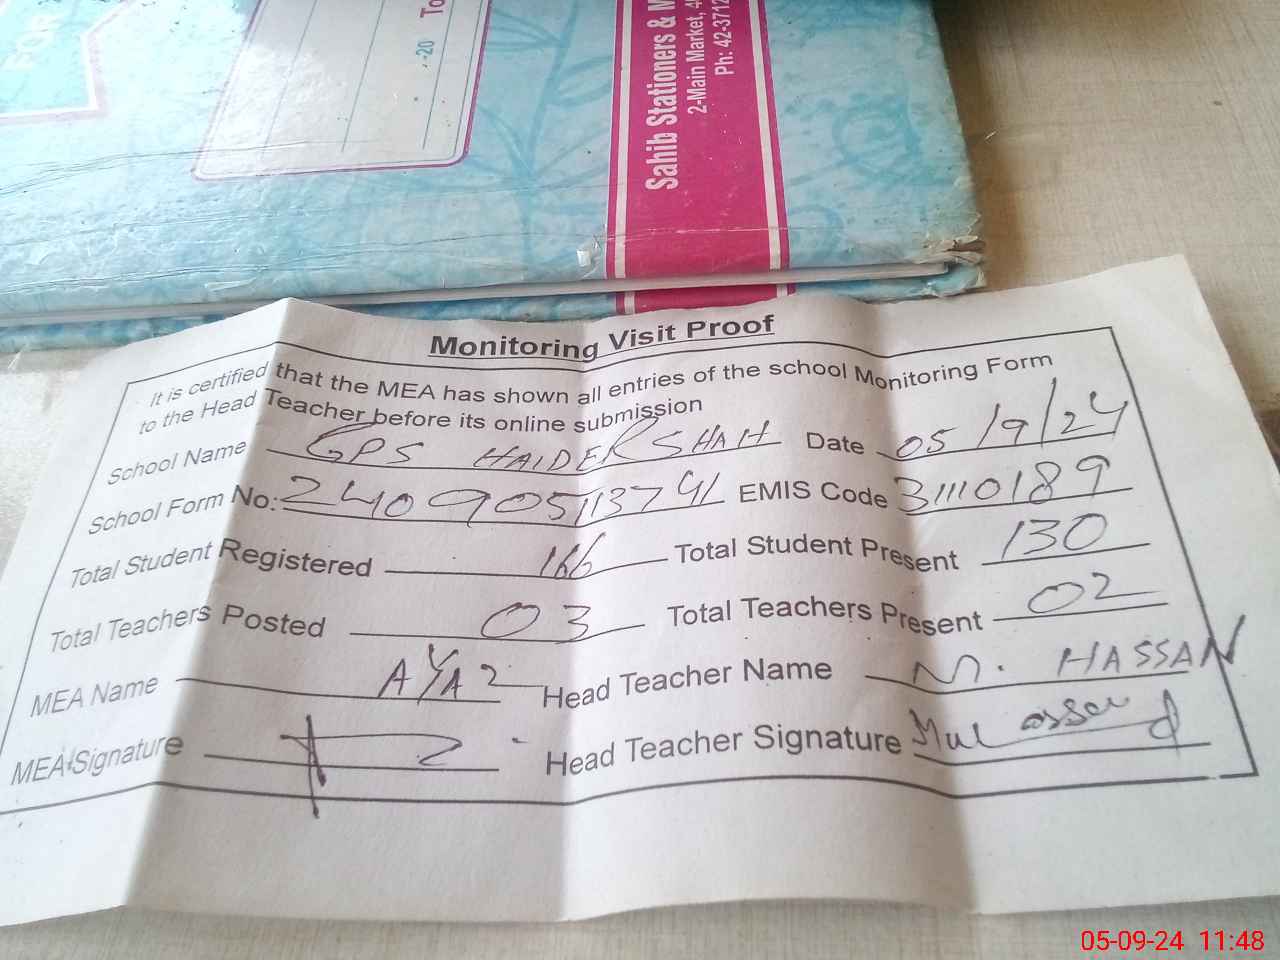 FOR
-20 To
Sahib Stationers & M
2-Main Market, 4
Ph: 42-3712
Monitoring Visit Proof
It is certified that the MEA has shown all entries of the school Monitoring Form
to the Head Teacher before its online submission
School Name GPS HAIDER SHAH Date 05/9/24
School Form No: EMIS Code 31110189
Total Student Registered 166 Total Student Present 130
Total Teachers Posted 03 Total Teachers Present 02
MEA Name AYAZ Head Teacher Name M. HASSAN
MEA Signature Head Teacher Signature
05-09-24 11:48